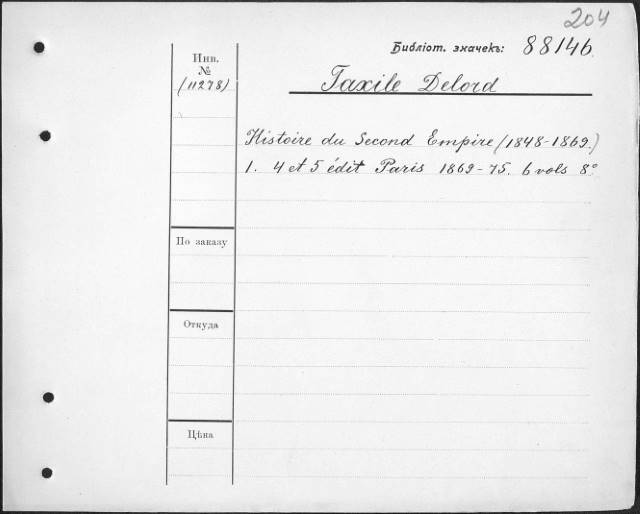 204
Библіот. значекъ: 88146.
Инв.
№
(11278)
Taxile Delord
Histoire du Second Empire (1848-1869.)
1. 4 et 5 édit Paris 1869-75. 6 vols 8°
По заказу
Откуда
Цѣна